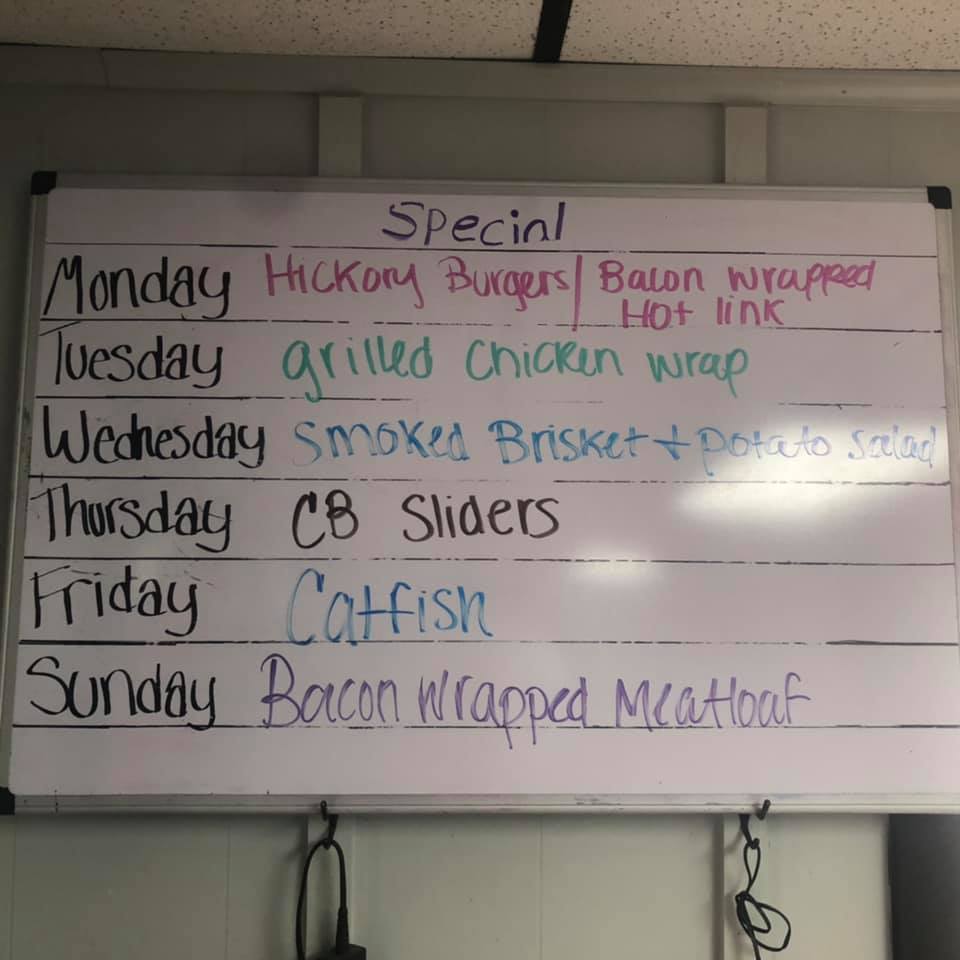 Special
Monday Hickory Burgers/ Bacon wrapped
Hot link
Tuesday grilled Chicken wrap
Wednesday Smoked Brisket + potato salad
Thursday CB Sliders
Friday Catfish
Sunday Bacon Wrapped Meatloaf